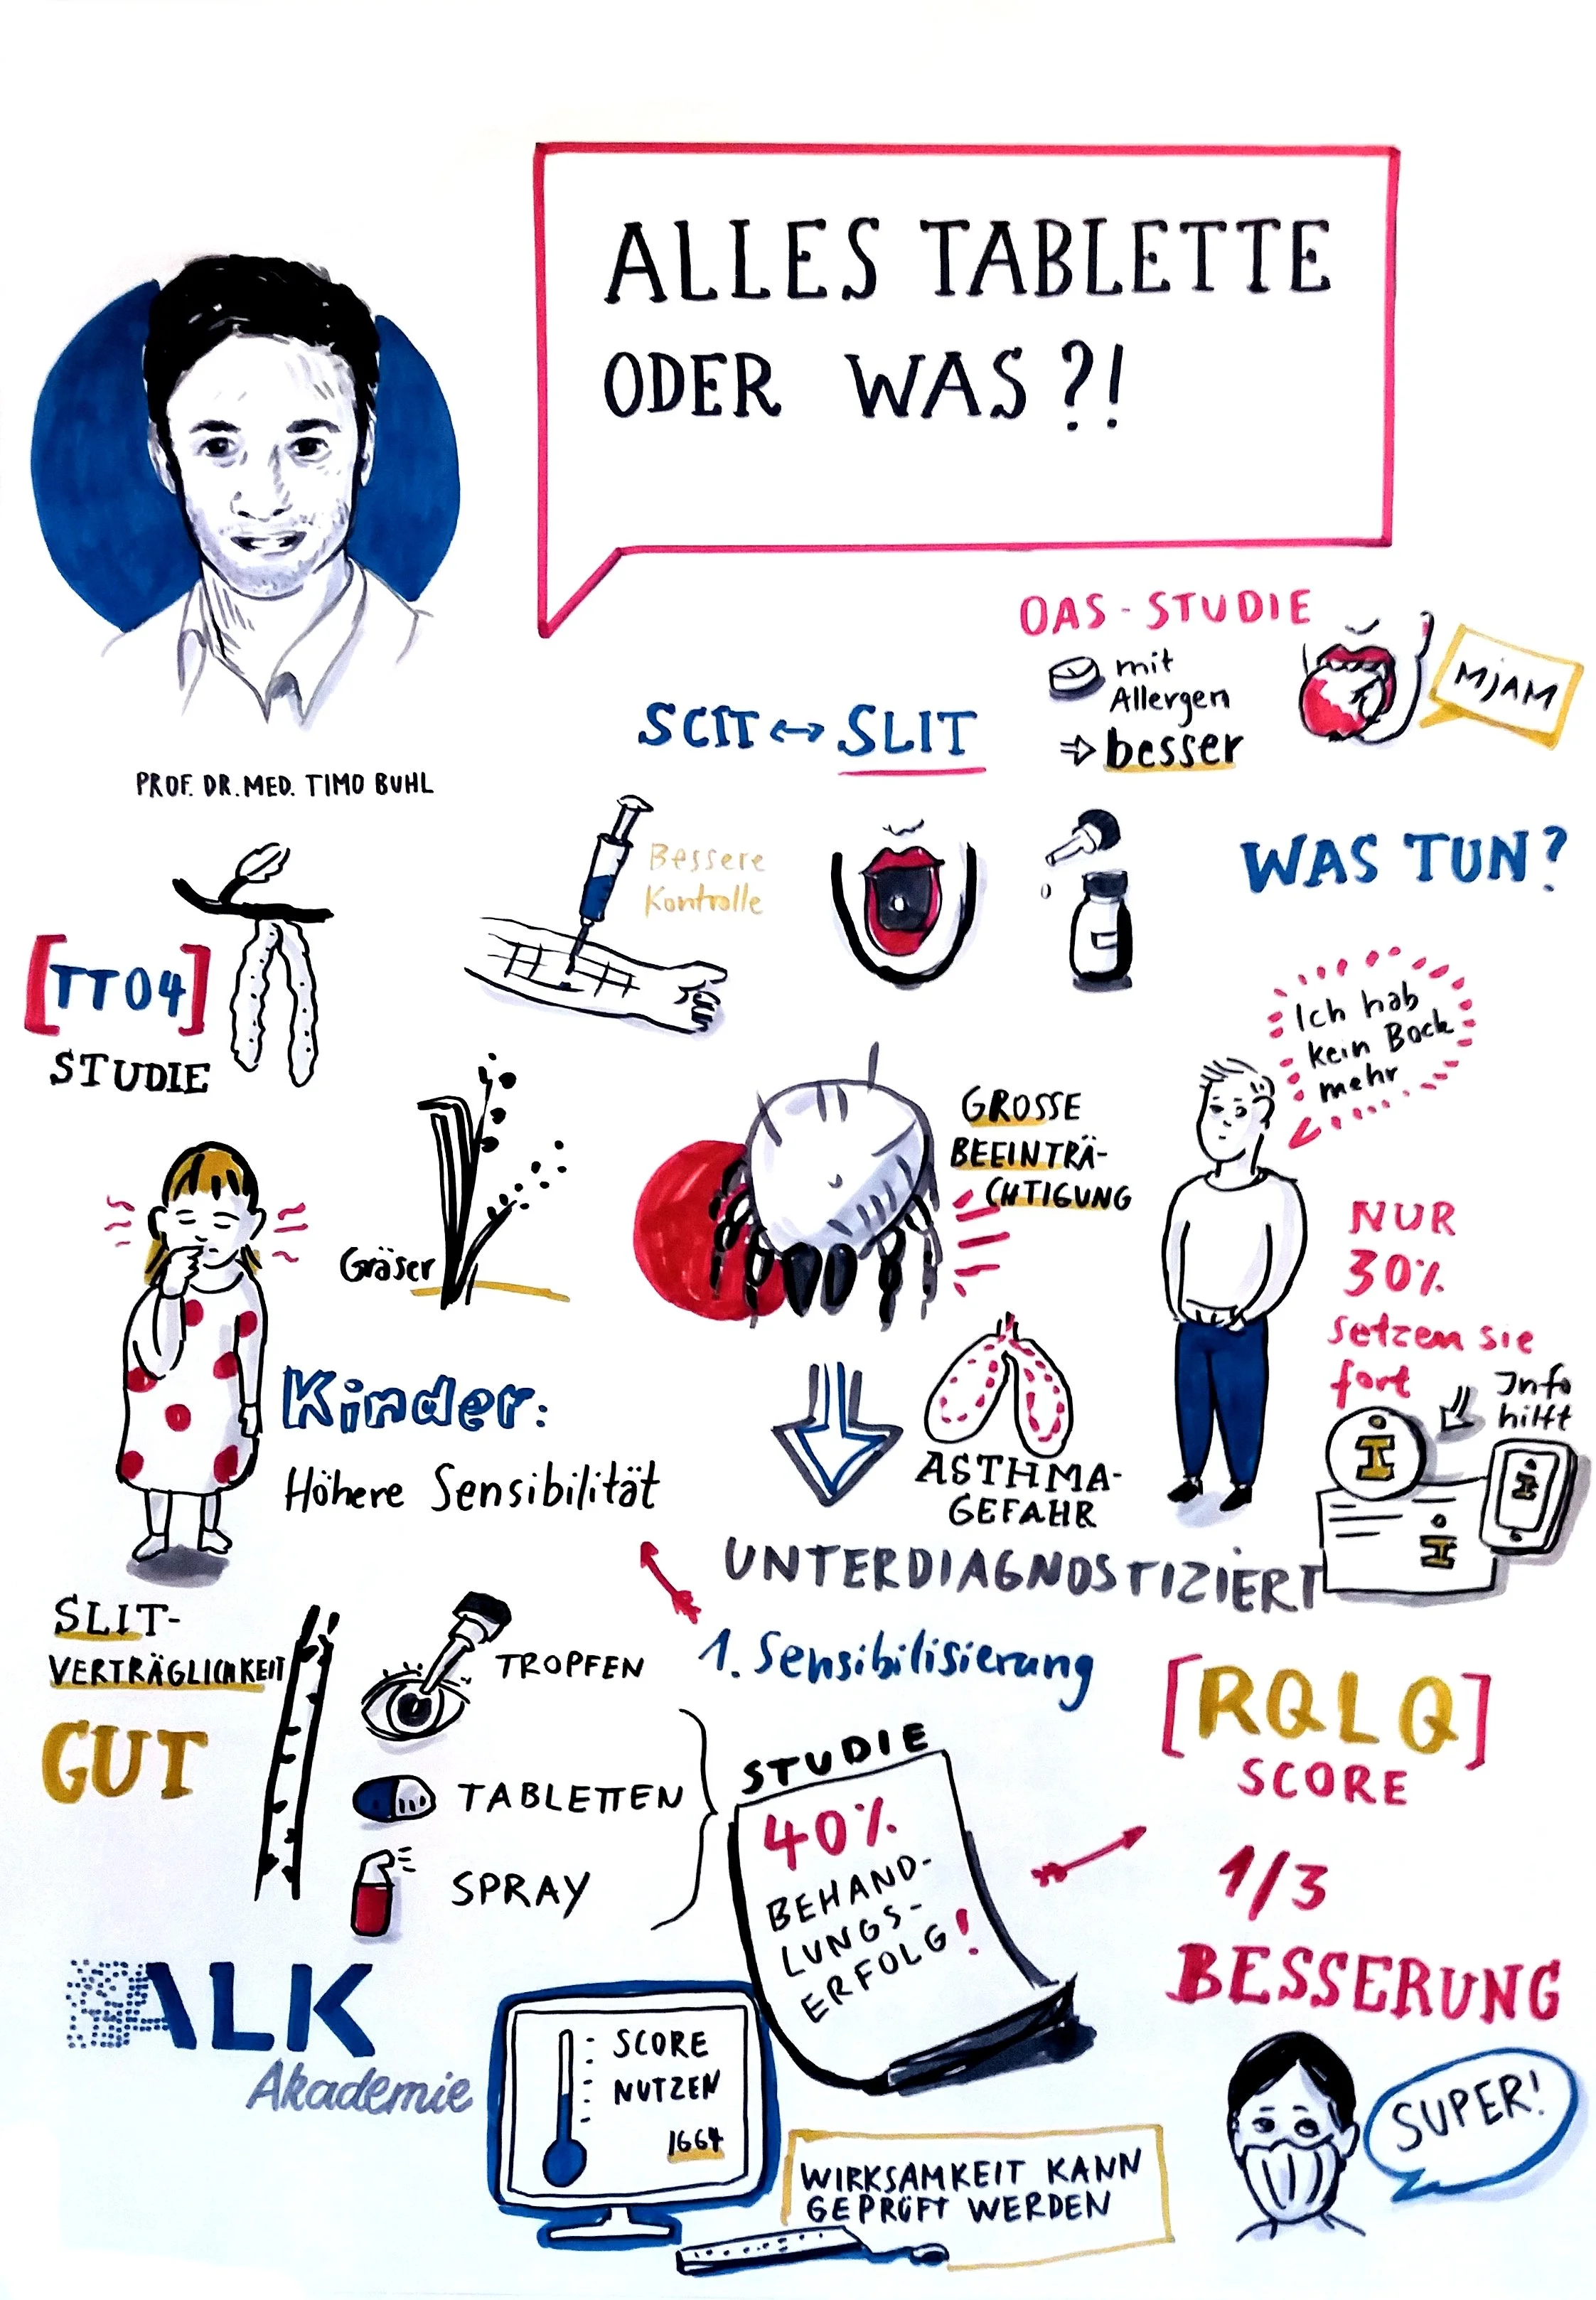 ALLES TABLETTE
ODER WAS?!
PROF. DR. MED. TIMO BUHL
OAS-STUDIE
mit
Allergen
⇒ besser
MJAM
SCIT ↔ SLIT
Bessere
Kontrolle
WAS TUN?
[TT04]
STUDIE
Ich hab
kein Bock
mehr
Gräser
GROSSE
BEEINTRÄ-
CHTIGUNG
NUR
30%
setzen sie
fort
Info
hilft
i
i
i
Kinder:
Höhere Sensibilität
ASTHMA-
GEFAHR
UNTERDIAGNOSTIZIERT
1. Sensibilisierung
SLIT-
VERTRÄGLICHKEIT
GUT
TROPFEN
TABLETTEN
SPRAY
STUDIE
40%
BEHAND-
LUNGS-
ERFOLG!
[RQLQ]
SCORE
1/3
BESSERUNG
SUPER!
ALK
Akademie
SCORE
NUTZEN
1664
WIRKSAMKEIT KANN
GEPRÜFT WERDEN